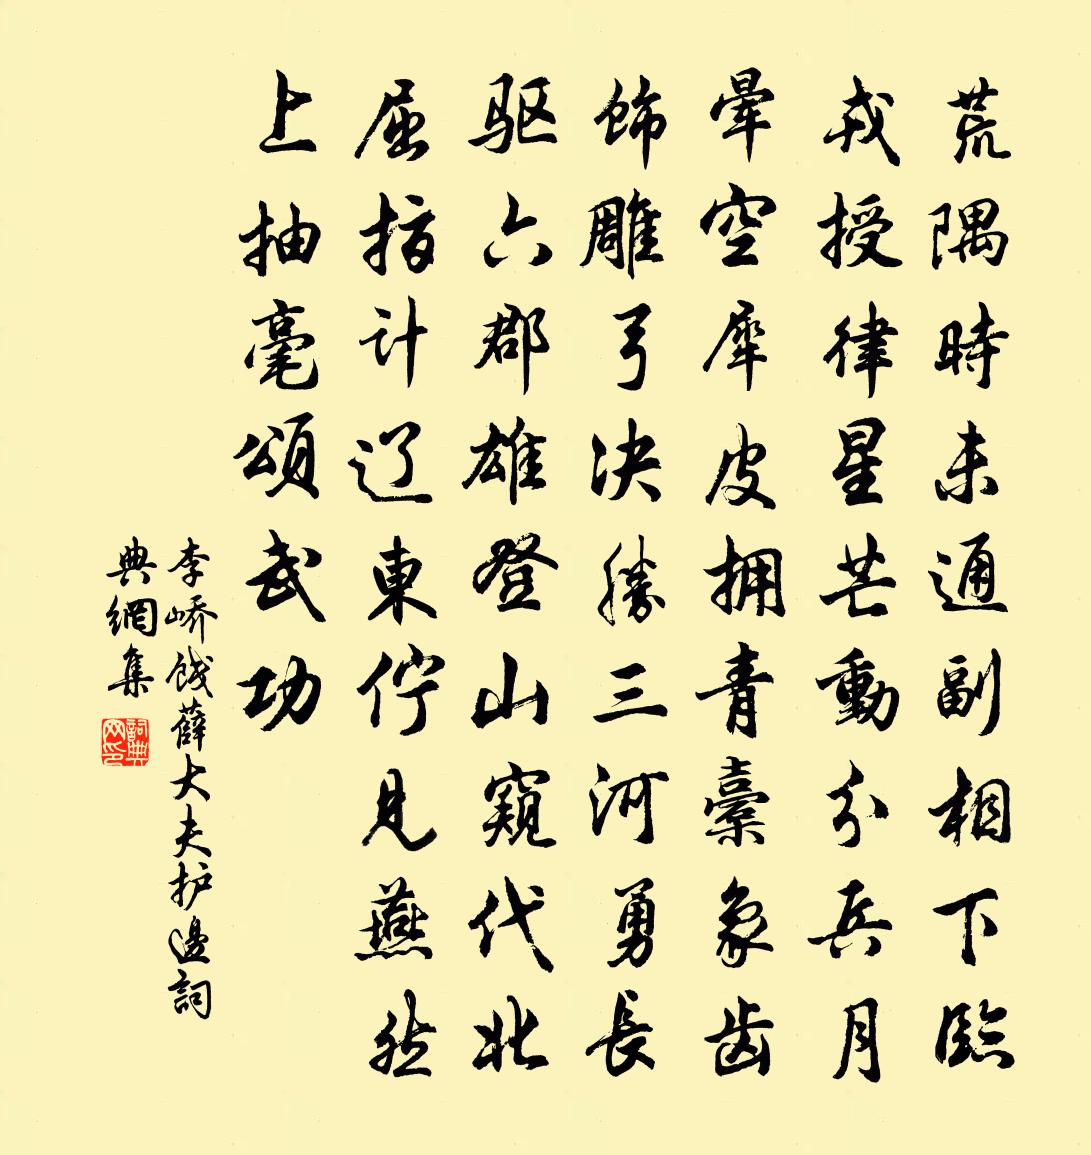 荒隅時未通副相下臨
戎授律星芒動分兵月
暈空犀皮拥青橐象齿
饰雕弓决勝三河勇長
驱六郡雄登山窺代北
屈指计辽東佇見燕然
上抽毫頌武功
李峤饯薛大夫护邊詞
典網集
詞典網印